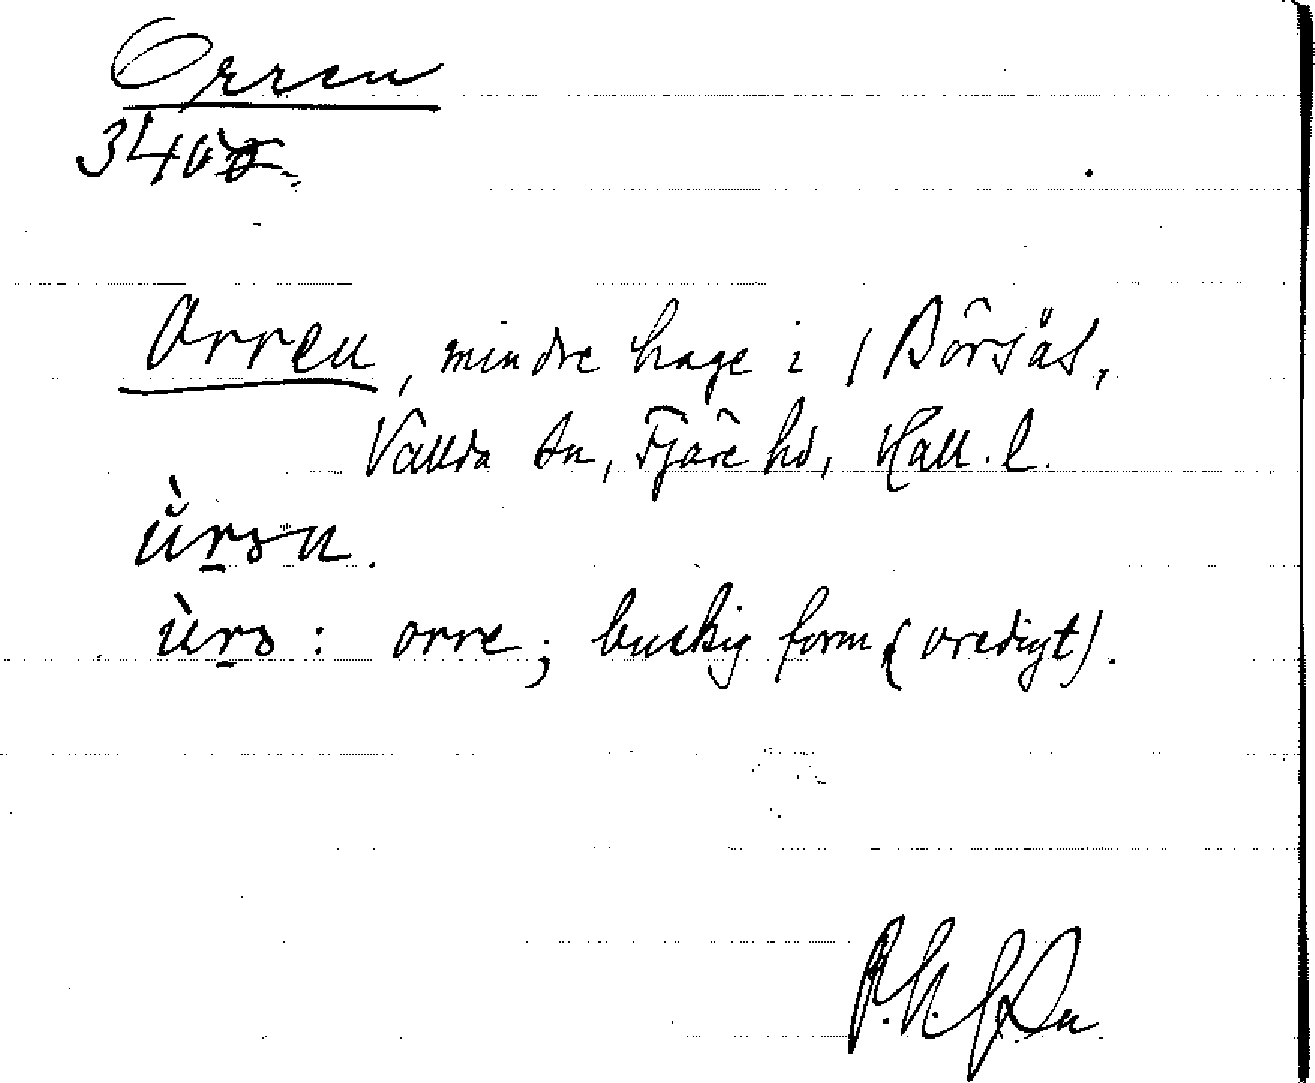 Orren
Orren, mindre hage i / Börsås,
Vallda sn, Fjäre hd, Hall. l.
ùrən.
ùrə: orre; buskig form (oredigt).